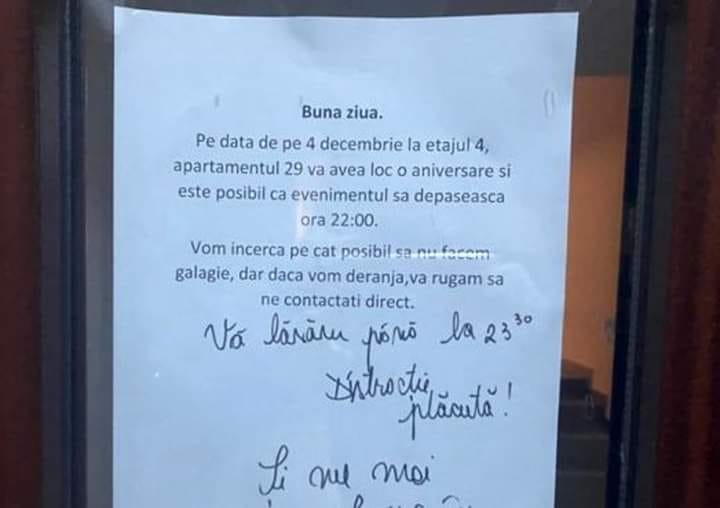 Buna ziua.
Pe data de pe 4 decembrie la etajul 4,
apartamentul 29 va avea loc o aniversare si
este posibil ca evenimentul sa depaseasca
ora 22:00.
Vom incerca pe cat posibil sa nu facem
galagie, dar daca vom deranja,va rugam sa
ne contactati direct.
Vă lăsăm până la 23 30
Distracție
plăcută!
Și ne mai